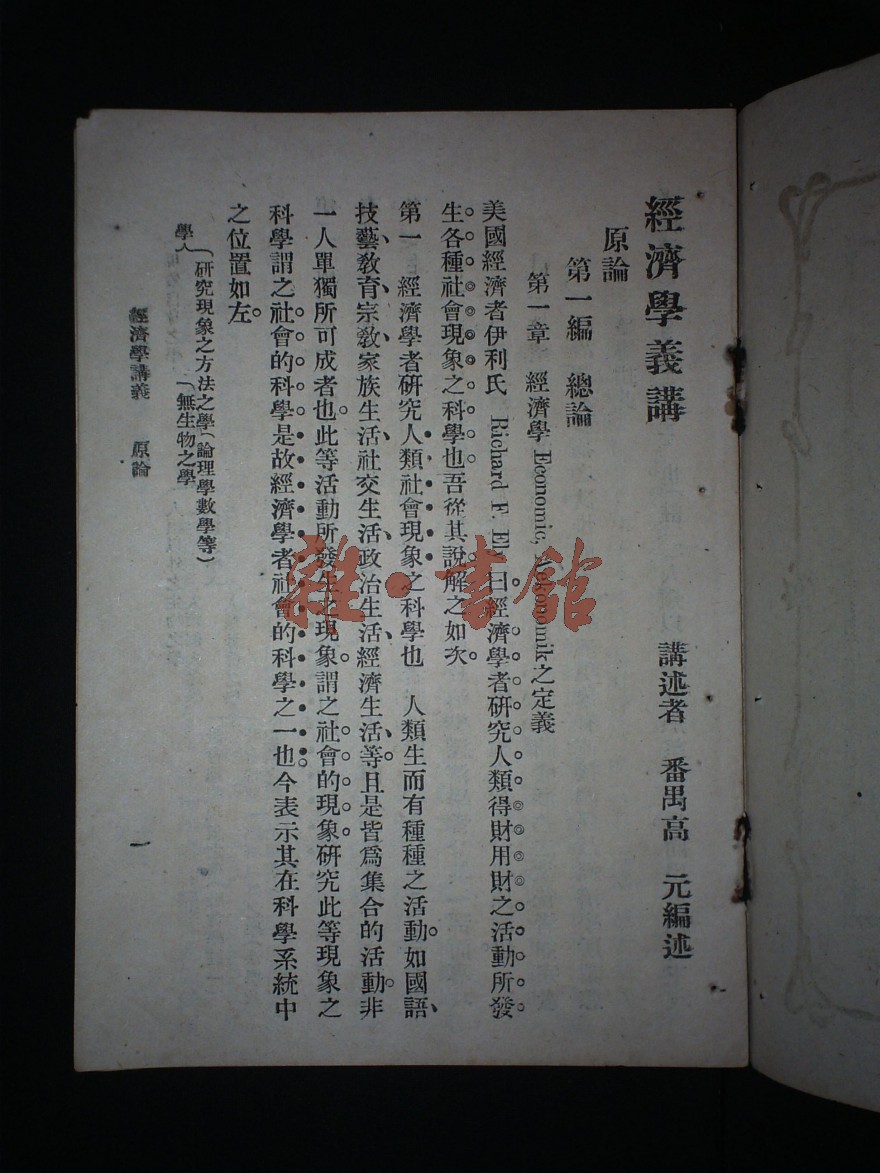 經濟學義講
講述者 番禺高 元編述
原論
第一編 總論
第一章 經濟學 Economic, 之定義
美國經濟者伊利氏 Richard F. 曰經濟學者研究人類得財用財之活動所發
生各種社會現象之科學也吾從其說解之如次。
第一 經濟學者研究人類社會現象之科學也 人類生而有種種之活動。如國語、
技藝、教育、宗教、家族生活、社交生活、政治生活、經濟生活、等。且是皆爲集合的活動。非
一人單獨所可成者也。此等活動所發生之現象。謂之社會的現象。研究此等現象之
科學。謂之社會的科學。是故經濟學者社會的科學之一也。今表示其在科學系統中
之位置如左。
學
研究現象之方法之學(論理學數學等)
無生物之學
經濟學講義 原論
一
雜·書館